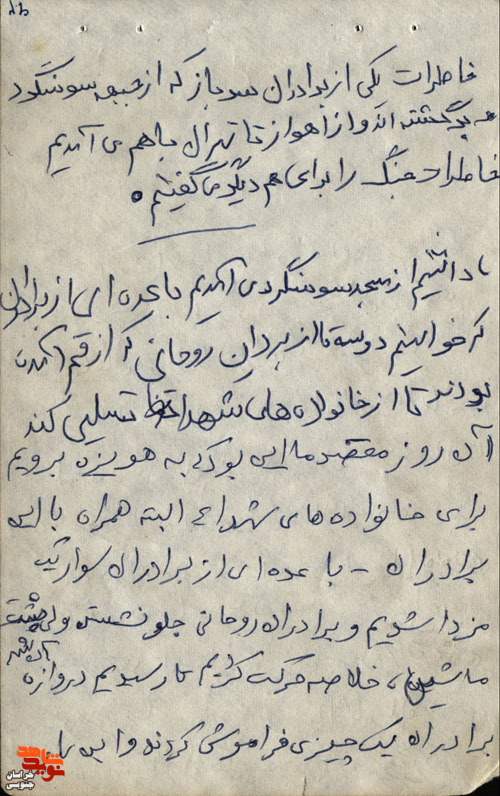 خاطرات یکی از برادران سرباز که از جبهه سوسنگرد
برگشته اند و از اهواز تا تهران با هم می آمدیم
خاطرات جنگ را برای هم دیگر می گفتیم .
ما داشتیم از مسجد سوسنگرد می آمدیم با عده ای از برادران
که خواستیم دو سه تا از برادران روحانی که از قم آمده
بودند تا از خانواده های شهدا تسلیی کند
آن روز مقصد ما این بود که به هویزه برویم
برای خانواده های شهدا البته همراه با این
برادران - با عده ای از برادران سوار یک
مزدا شدیم و برادران روحانی جلو نشستن ولی پشت
ماشین ، خلاصه حرکت کردیم تا رسیدیم دروازه
برادران یک چیزی فراموش کردند و این را
نوید شاهد
خراسان
جنوبی